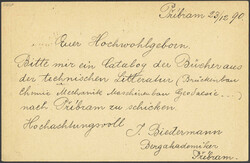 Přibram 23/12 90
Euer Hochwohlgeborn.
Bitte mir ein Catalog der Bücher aus
der technischen Litteratur (Brückenbau
Chemie Mechanik Maschinenbau Geodaesie ...)
nach Přibram zu schicken
Hochachtungsvoll J. Biedermann
Bergakademiker
Přibram.